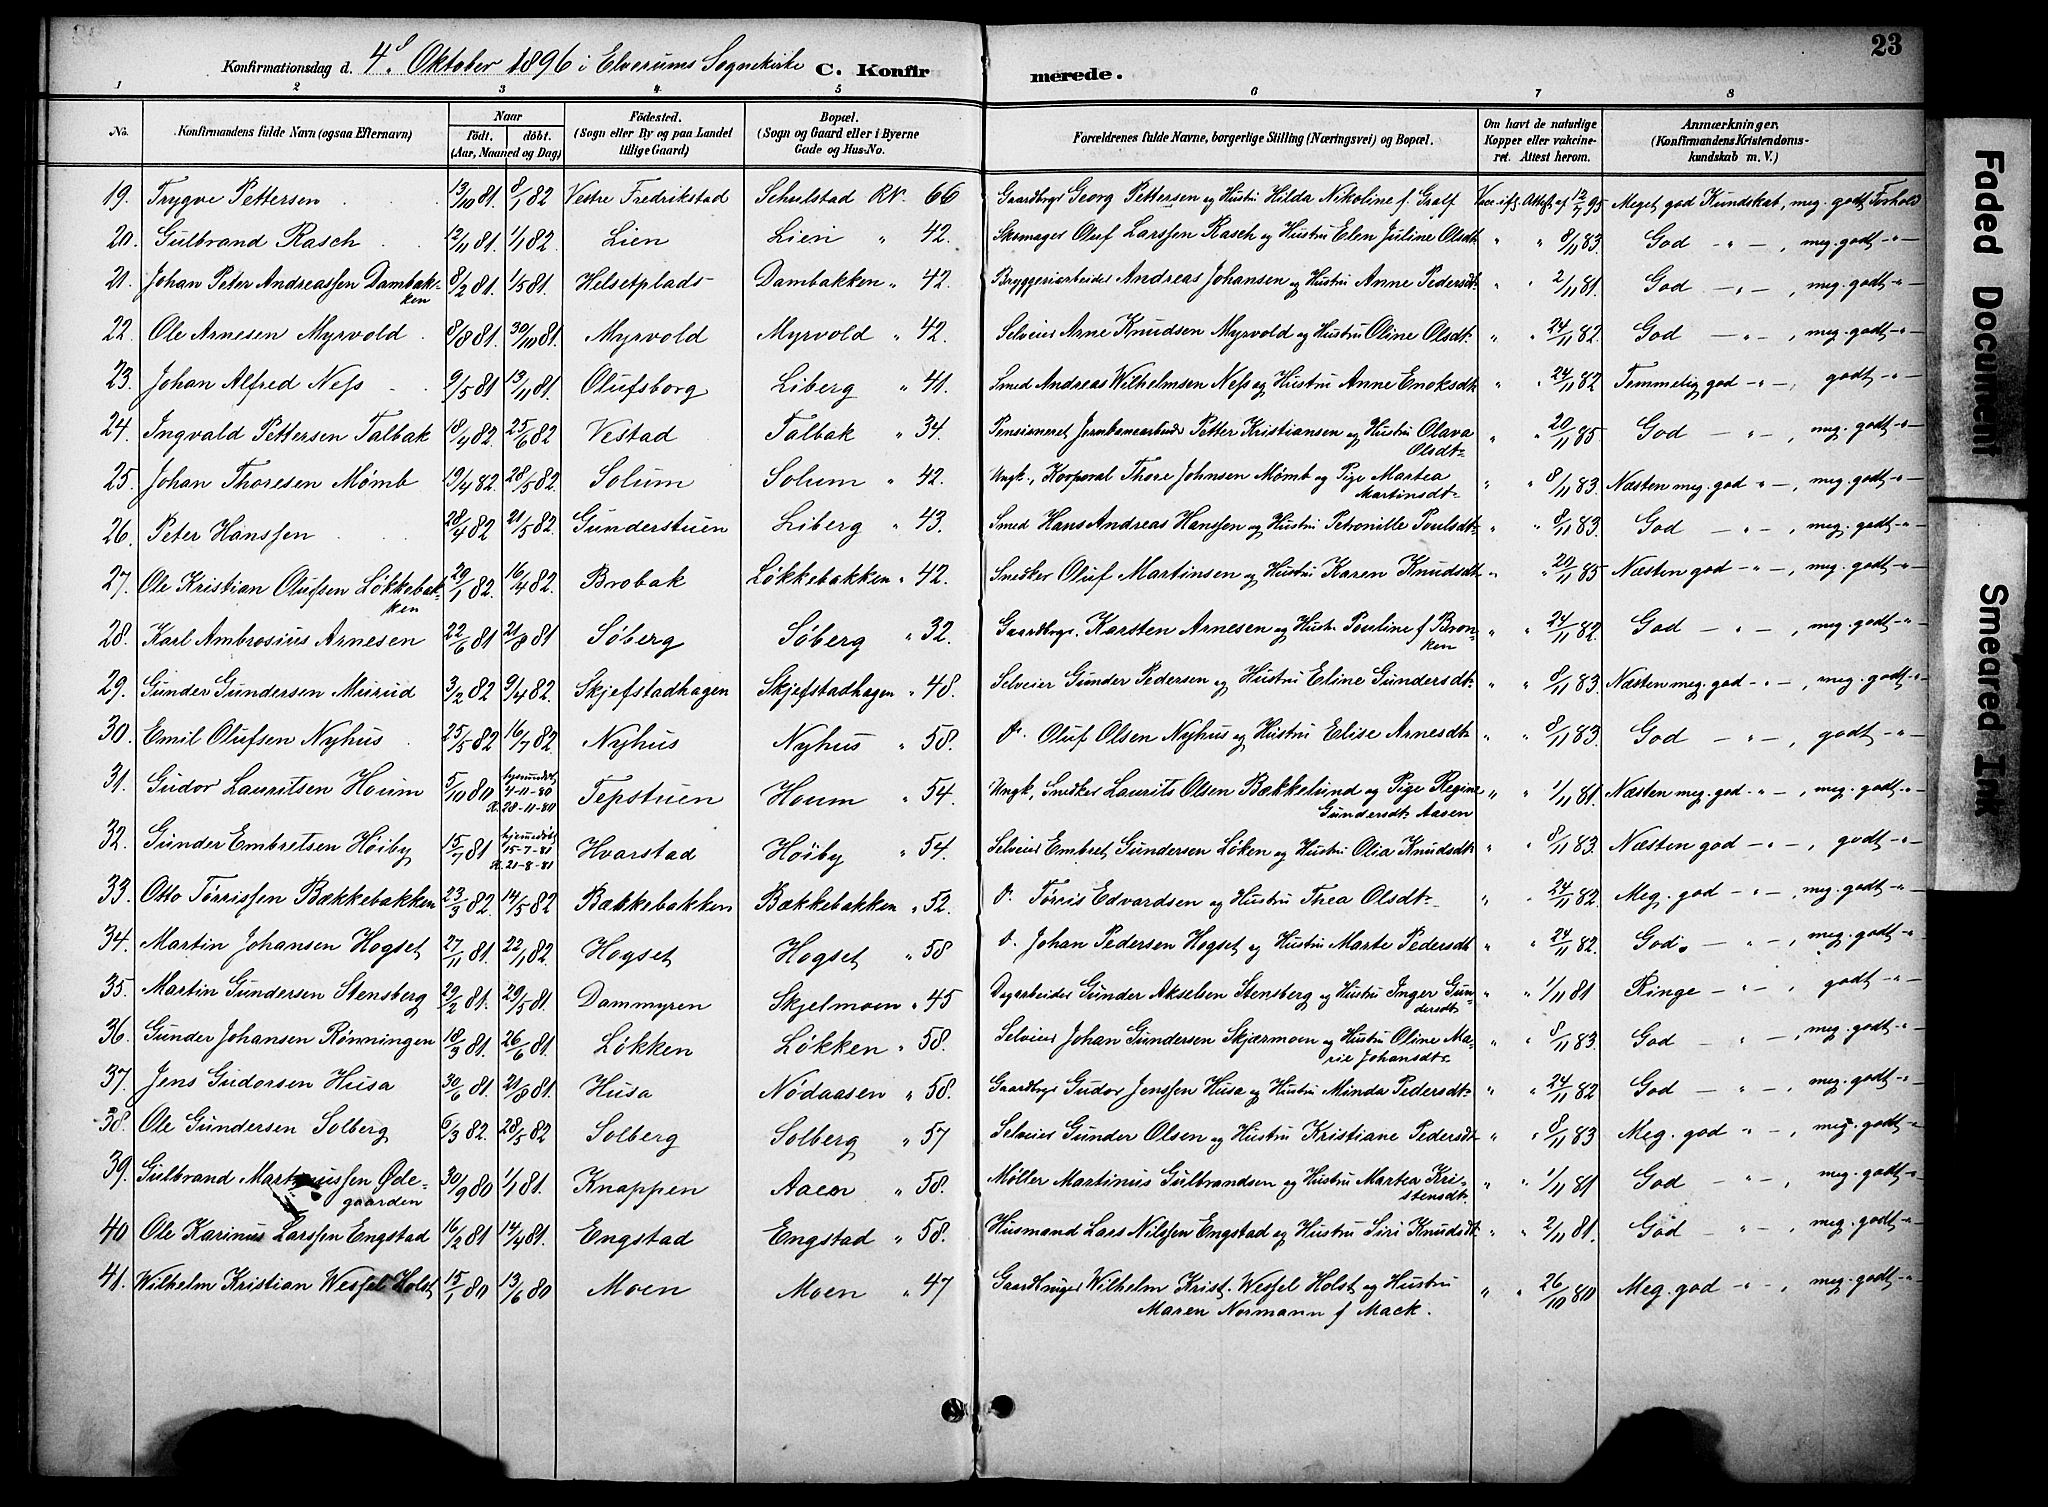 23
Konfirmationsdag d. 4de Oktober 1896 i Elverums Sognekirke C. Konfirmerede.
1 2 3 4 5 6 7 8
No. Konfirmandens fulde Navn (ogsaa Efternavn) Naar Födt. döbt. (Aar, Maaned og Dag) Födested. (Sogn eller By og paa Landet tillige Gaard) Bopæl. (Sogn og Gaard eller i Byerne Gade og Hus-No. Forældrenes fulde Navne, borgerlige Stilling (Næringsvei) og Bopæl. Om havt de naturlige Kopper eller vakcineret. Attest herom. Anmærkninger. (Konfirmandens Kristendomskundskab m. V.)
19. Trygve Pettersen 13/10 81. 8/1 82 Vestre Fredrikstad Schulstad RN. 66 Gaardbrgr Georg Pettersen og Hustru Hilda Nikoline f. Gralf Vacc. ifg. Attest af 12/7 95 Meget god Kundskab, meg. godt Forhold
20. Gulbrand Rasch 12/11 81. 1/1 82. Lien Lien " 42. Skomager Oluf Larssen Rasch og Hustru Elen Juline Olsdt. " " 8/11 83. God - " - , meg. godt -"-
21. Johan Peter Andreassen Dambakken 8/2 81. 1/5 81. Helsetplads Dambakken " 42. Bryggeriarbeider Andreas Johansen og Hustru Anne Pedersdt. " " 2/11 81. God - " - , meg. godt -"-
22. Ole Arnesen Myrvold 8/8 81. 30/10 81. Myrvold Myrvold " 42. Selveier Arne Knudsen Myrvold og Hustru Oline Olsdt. " " 24/11 82. God - " - , meg. godt -"-
23. Johan Alfred Ness 9/5 81 13/11 81. Olufsborg Liberg " 41. Smed Andreas Wilhelmsen Ness og Hustru Anne Enoksdt. " " 24/11 82 Temmelig god -"- , godt -"-
24. Ingvald Pettersen Talbak 18/4 82. 25/6 82 Vestad Talbak " 34. Pensioneret Jernbanearbeider Petter Kristiansen og Hustru Olava Olsdt. " " 20/11 85. God - " - , meg. godt -"-
25. Johan Thoresen Mømb 19/4 82. 28/5 82. Solum Solum " 42. Ungk., Korporal Thore Johnsen Mømb og Pige Martea Martinsdt. " " 8/11 83. Næsten meg. god " - , meg. godt -"-
26. Peter Hanssen 28/4 82 21/5 82. Gunderstuen Liberg " 43. Smed Hans Andreas Hanssen og Hustru Petronille Poulsdt. " " 8/11 83. God - " - , meg. godt -"-
27. Ole Kristian Olufsen Løkkebakken 29/1 82. 16/4 82. Brobak Løkkebakken " 42. Snedker Oluf Martinsen og Hustru Karen Knudsdt. " " 20/11 85 Næsten god -"- , meg. godt -"-
28. Karl Ambrosius Arnesen 22/6 81 21/8 81 Søberg Søberg " 32. Gaardbrgr. Karsten Arnesen og Hustr. Pouline f. Bronken " " 24/11 82. God - " - , meg. godt -"-
29. Gunder Gundersen Murud 3/2 82 9/4 82. Skjefstadhagen Skjefstadhagen " 48. Selveier Gunder Pedersen og Hustru Eline Gundersdt. " " 8/11 83. Næsten meg. god -"- , meg. godt -"-
30. Emil Olufsen Nyhus 25/5 82 16/7 82. Nyhus Nyhus " 58. Do. Oluf Olsen Nyhus og Hustru Elise Arnesdt. " " 8/11 83. God - " - , godt -"-
31. Gudor Lauritsen Houm 5/10 80 hjemmedøbt 4-11-80 K. 28-11-80 Tepstuen Houm " 54. Ungk., Snedker Laurits Olsen Bækkelund og Pige Regine Gundersdt. Aasen " " 1/11 81. Næsten meg. god -"- , meg. godt -"-
32. Gunder Embretsen Høiby 15/7 81 hjemmedøbt 15-7-81 K. 21-8-81 Hvarstad Høiby " 54. Selveier Embret Gundersen Løken og Hustru Olia Knudsdt. " " 8/11 83. Næsten god -"- , godt -"-
33. Otto Tørrissen Bækkebakken 23/3 82. 14/5 82 Bækkebakken Bækkebakken " 52. Do. Tørris Edvardsen og Hustru Thea Olsdt. " " 24/11 82. Meg. god -"- , meg. godt -"-
34. Martin Johansen Hogset 27/11 81. 22/1 82. Hogset Hogset " 58 Do. Johan Pedersen Hogset og Hustru Marte Pedersdt. " " 24/11 82. God. - " - , meg. godt -"-
35. Martin Gundersen Stensberg 29/2 81. 29/5 81. Dammyren Skjelmoen " 45 Dagarbeider Gunder Akselsen Stensberg og Hustru Inger Gundersdt. " " 1/11 81 Ringe -"- , godt -"-
36. Gunder Johansen Rønningen 18/3 81. 26/6 81. Løkken Løkken " 58. Selveier Johan Gundersen Skjærmoen og Hustru Oline Marie Johansdt. " " 8/11 83. God " - , meg. godt -"-
37. Jens Gudorsen Husa 30/6 81. 21/8 81. Husa Nødaasen " 58. Gaardbrgr Gudor Jenssen Husa og Hustru Minda Pedersdt. " " 24/11 82 God - " - , meg. godt -"-
38. Ole Gundersen Solberg 6/3 82. 28/5 82 Solberg Solberg " 57 Selveier Gunder Olsen og Hustru Kristiane Pedersdt. " " 8/11 83 Meg. god " - , meg. godt -"-
39. Gulbrand Martinussen Ødegaarden 30/9 80 1/1 81. Knappen Aaen " 58. Møller Martinus Gulbrandsen og Hustru Martea Kristensdt. " " 1/11 81 God - " - , meg. godt -"-
40 Ole Karinus Larssen Engstad 16/2 81 14/4 81. Engstad Engstad " 58. Husmand Lars Nilssen Engstad og Hustru Siri Knudsdt. " " 2/11 81. God " - , meg. godt -"-
41. Wilhelm Kristian Wessel Holst 15/1 80 13/6 80 Moen Moen " 47 Gaardbruger Wilhelm Krist. Wessel Holst og Hustru Maren Normann f. Mack. " " 26/10 80 Meg. god -"- , meg. godt -"-
Faded Document
Smeared Ink